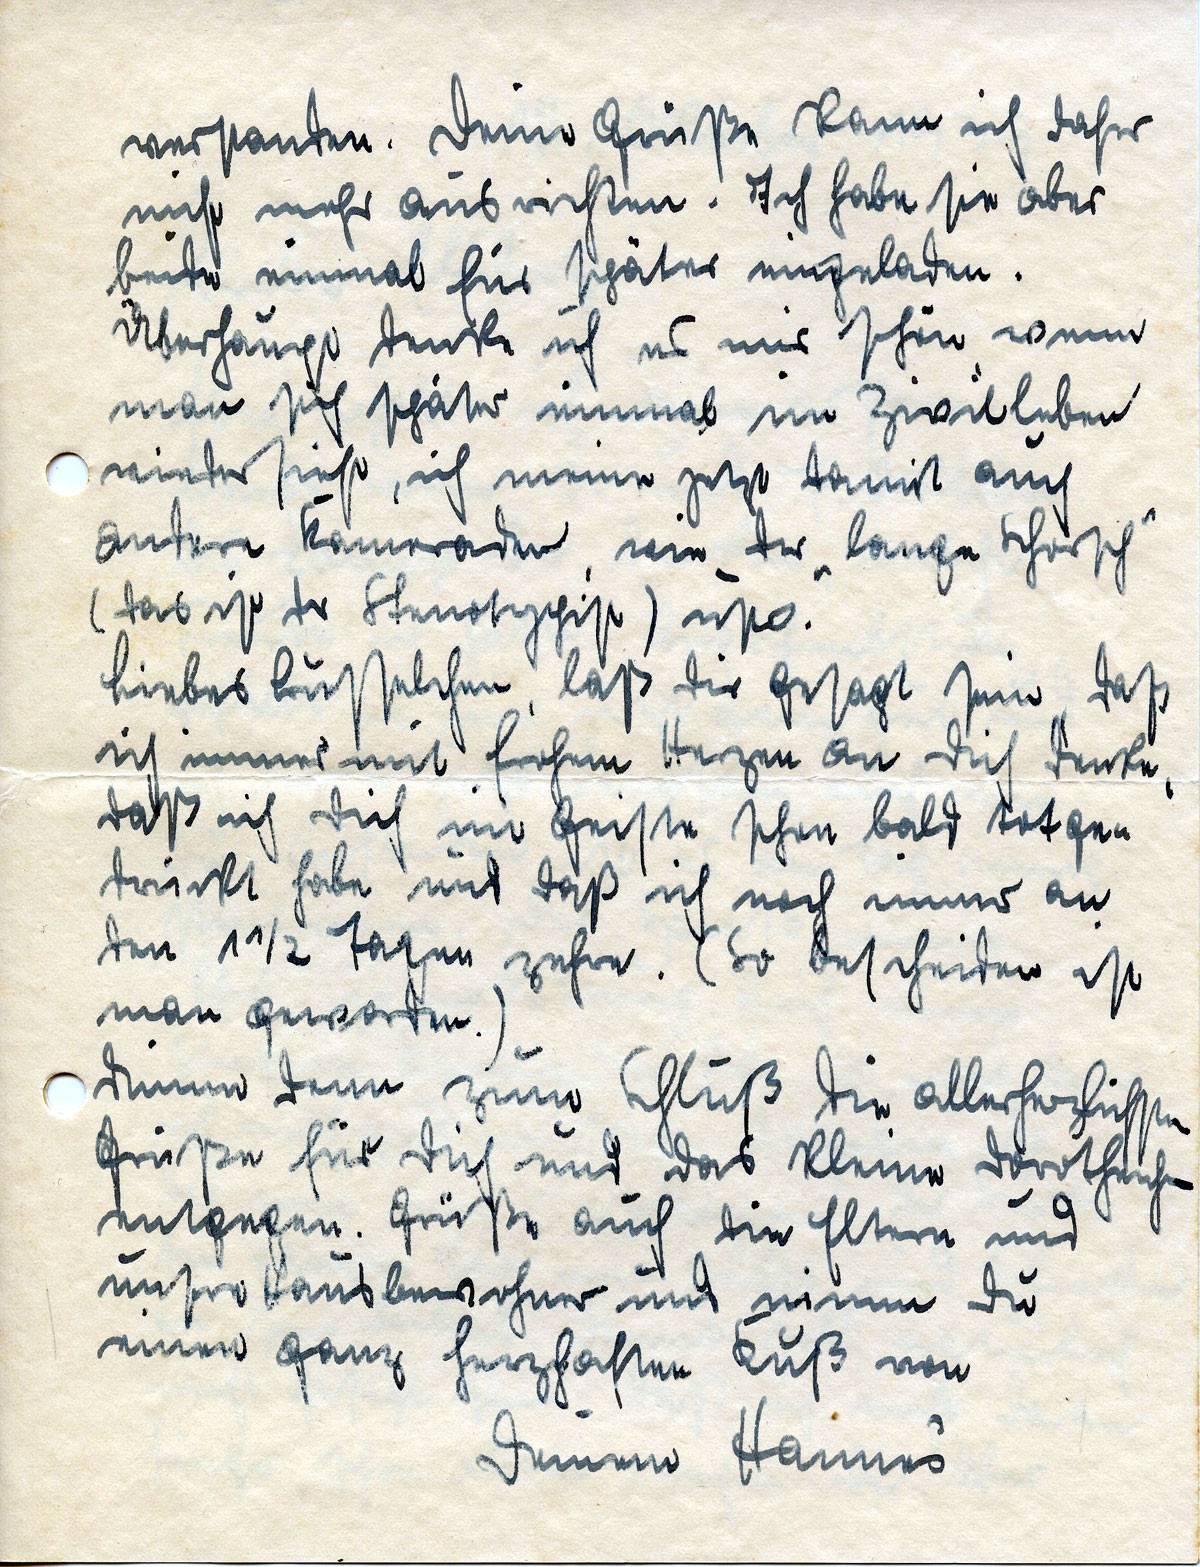 verstanden. Deine Grüße kann ich daher
nicht mehr ausrichten. Ich habe sie aber
beide einmal für später eingeladen.
Überhaupt denke ich es mir schön, wenn
man sich später einmal im Zivilleben
wiedersieht, ich meine jetzt damit auch
andere Kameraden, wie der „lange Schorsch"
(das ist der Stenotypist) usw.
Liebes Busselchen, laß dir gesagt sein, daß
ich immer mit frohem Herzen an Dich denke,
daß ich Dich im Geiste schon bald totge-
drückt habe und daß ich noch immer an
den 1 1/2 Tagen zehre. (So bescheiden ist
man geworden.)
Nimm denn zum Schluß die allerherzlichsten
Grüße für Dich und das kleine Dorotheechen
entgegen. Grüße auch die Eltern und
unsre Hausbewohner und nimm Du
einen ganz herzhaften Kuß von
Deinem Hannes